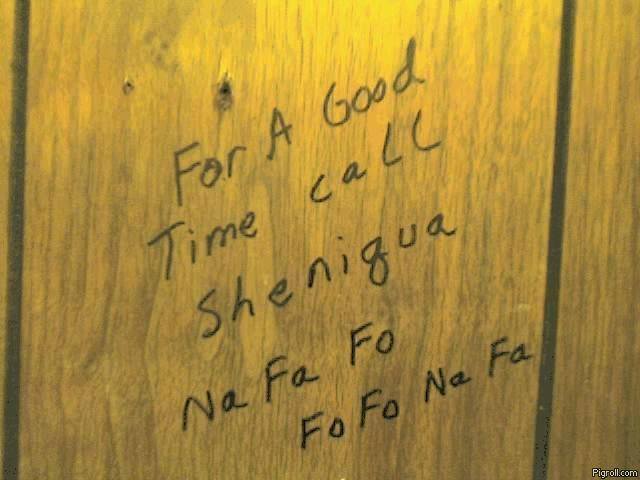 For A Good
Time call
Sheniqua
Na Fa Fo
Fo Fo Na Fa
Pigroll.com